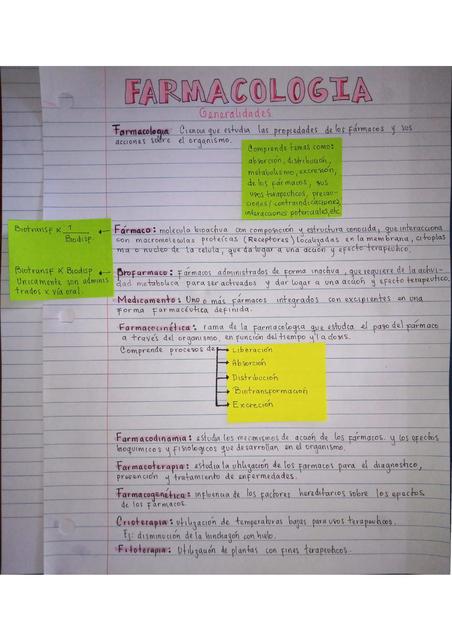 FARMACOLOGIA
Generalidades
Farmacología: Ciencia que estudia las propiedades de los fármacos y sus
acciones sobre el organismo.
Comprende temas como:
absorción, distribución,
metabolismo, excresión,
de los fármacos, sus
usos terapeuticos, precau-
ciones/contraindicaciones,
interacciones potenciales, etc
Biotransf x 1
Biodisp
Fármaco: molécula bioactiva con composición y estructura conocida, que interacciona
con macromoléculas proteicas (Receptores) localizadas en la membrana, citoplas
ma o nucleo de la celula, que da lugar a una acción y efecto terapéutico.
Biotransf x Biodisp
Unicamente son adminis
trados x vía oral.
Profarmaco: Fármacos administrados de forma inactiva, que requiere de la activi-
dad metabolica para ser activados y dar lugar a una acción y efecto terapeutico.
Medicamento: Uno o más fármacos integrados con excipientes en una
forma farmacéutica definida.
Farmacocinética: rama de la farmacologia que estudia el paso del fármaco
a través del organismo, en función del tiempo y la dosis.
Comprende procesos de
Liberación
Absorción
Distribución
Biotransformación
Excreción
Farmacodinamia: estudia los mecanismos de acción de los fármacos y los efectos
bioquimicos y fisiologicos que desarrollan en el organismo.
Farmacoterapia: estudia la utilización de los farmacos para el diagnostico,
prevención y tratamiento de enfermedades.
Farmacogenética: influencia de los factores hereditarios sobre los efectos
de los fármacos.
Crioterapia: utilización de temperaturas bajas para usos terapeuticos.
Ej: disminución de la hinchazón con hielo.
Fitoterapia: Utilización de plantas con fines terapeuticos.